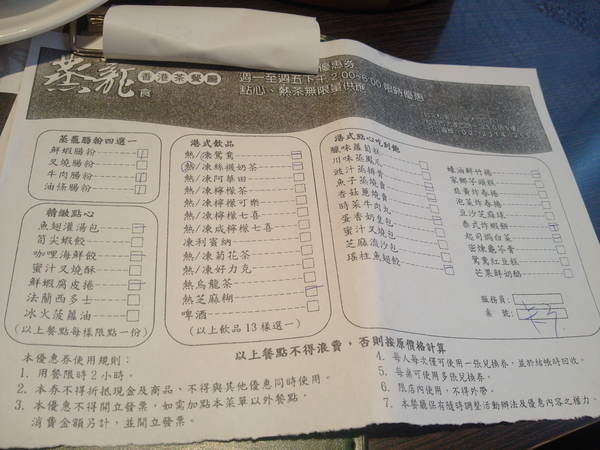 蒸龍
食
香港茶餐廳
優惠券
週一至週五下午2:00~6:00限時優惠
點心、熱茶無限量供應
蒸籠腸粉四選一
鮮蝦腸粉
叉燒腸粉
牛肉腸粉
油條腸粉
精緻點心
魚翅灌湯包
筍尖蝦餃
咖哩海鮮餃
蜜汁叉燒酥
鮮蝦腐皮捲
法蘭西多士
冰火菠蘿油
(以上餐點每樣限點一份)
港式飲品
熱/凍鴛鴦
熱/凍絲襪奶茶
熱/凍阿華田
熱/凍檸檬茶
熱/凍檸檬可樂
熱/凍檸檬七喜
熱/凍咸檸檬七喜
凍利賓納
熱/凍菊花茶
熱/凍好力克
熱烏龍茶
熱芝麻糊
啤酒
(以上飲品13樣選一)
港式點心吃到飽
臘味蘿蔔糕
川味蒸鳳爪
豉汁蒸排骨
魚子蒸燒賣
香菇蒸燒賣
時菜牛肉丸
蛋香奶皇包
蜜汁叉燒包
芝麻流沙包
瑤柱魚翅餃
蠔油鮮竹捲
家鄉芋頭糕
韭黃炸春捲
泡菜炸春捲
豆沙芝麻球
泰式炸蝦餅
起司焗白菜
密煉龜苓膏
鴛鴦紅豆糕
芒果鮮奶酪
服務員:
桌號:
以上餐點不得浪費,否則按原價格計算
本優惠券使用規則:
1. 用餐限時2小時。
2. 本券不得折抵現金及商品、不得與其他優惠同時使用。
3. 本優惠不得開立發票,如需加點本菜單以外餐點,
消費金額另計,並開立發票。
4. 每人每次僅可使用一張兌換券,並於結帳時回收。
5. 每桌可使用多張兌換券。
6. 限店內使用,不得外帶。
7. 本餐廳保有隨時調整活動辦法及優惠內容之權力。